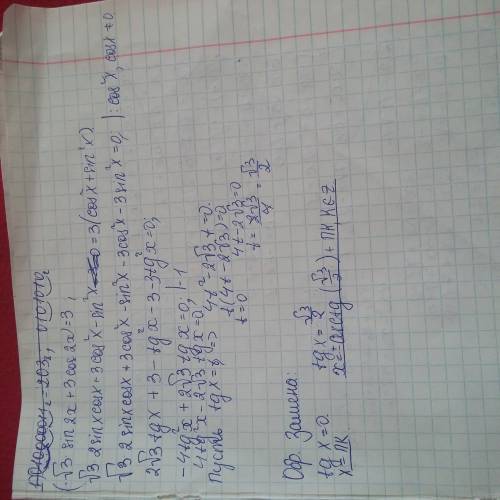 (√3 sin 2x + 3 cos 2x) = 3;
√3 2 sin x cos x + 3 cos²x - sin²x = 3 (cos²x + sin²x)
√3 2 sin x cos x + 3 cos²x - sin²x - 3 cos²x - 3 sin²x = 0; | : cos²x, cos x ≠ 0.
2√3 tg x + 3 - tg²x - 3 - 3 tg²x = 0;
-4 tg²x + 2√3 tg x = 0; | · -1
4 tg²x - 2√3 tg x = 0;
Пусть tg x = t, => 4t² - 2√3 t = 0.
t(4t - 2√3) = 0
t = 0 4t - 2√3 = 0
t = 2√3/4 = √3/2
Обр. Замена:
tg x = 0. tg x = √3/2
x = πk x = ±arctg(√3/2) + πk, k ∈ Z